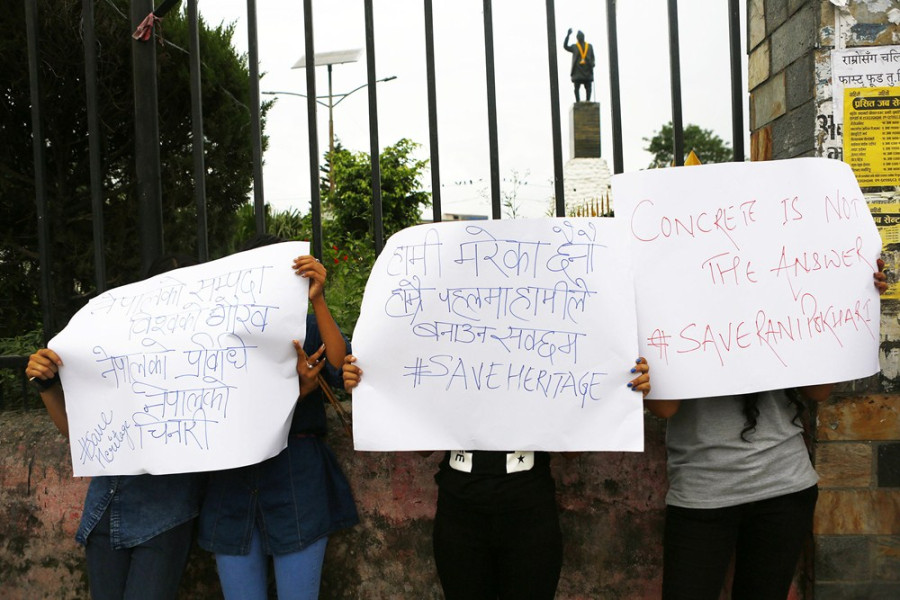 नेपालको सम्पदा
विश्वको गौरव
नेपालको प्रविधि
नेपालको
चिनारी
#Save
Heritage
हामी मरेका छैनौ
हाम्रै पहलमा हामीले
बनाउन सक्छम
#SAVEHERITAGE
CONCRETE IS NOT
THE ANSWER
#SAVERANIPOKHARI
राम्रोसँग चलि
फास्ट फूड तु